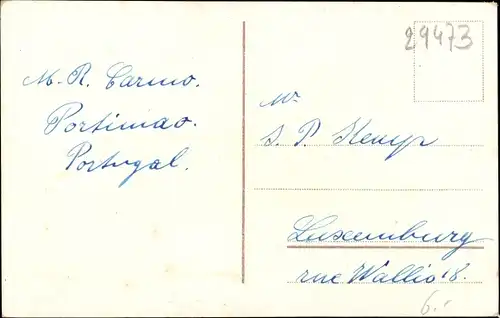 29473
M. R. Carmo.
Portimao.
Portugal.
Mr
S. P. Kemp
Luxemburg
rue Wallis 18.
6.-